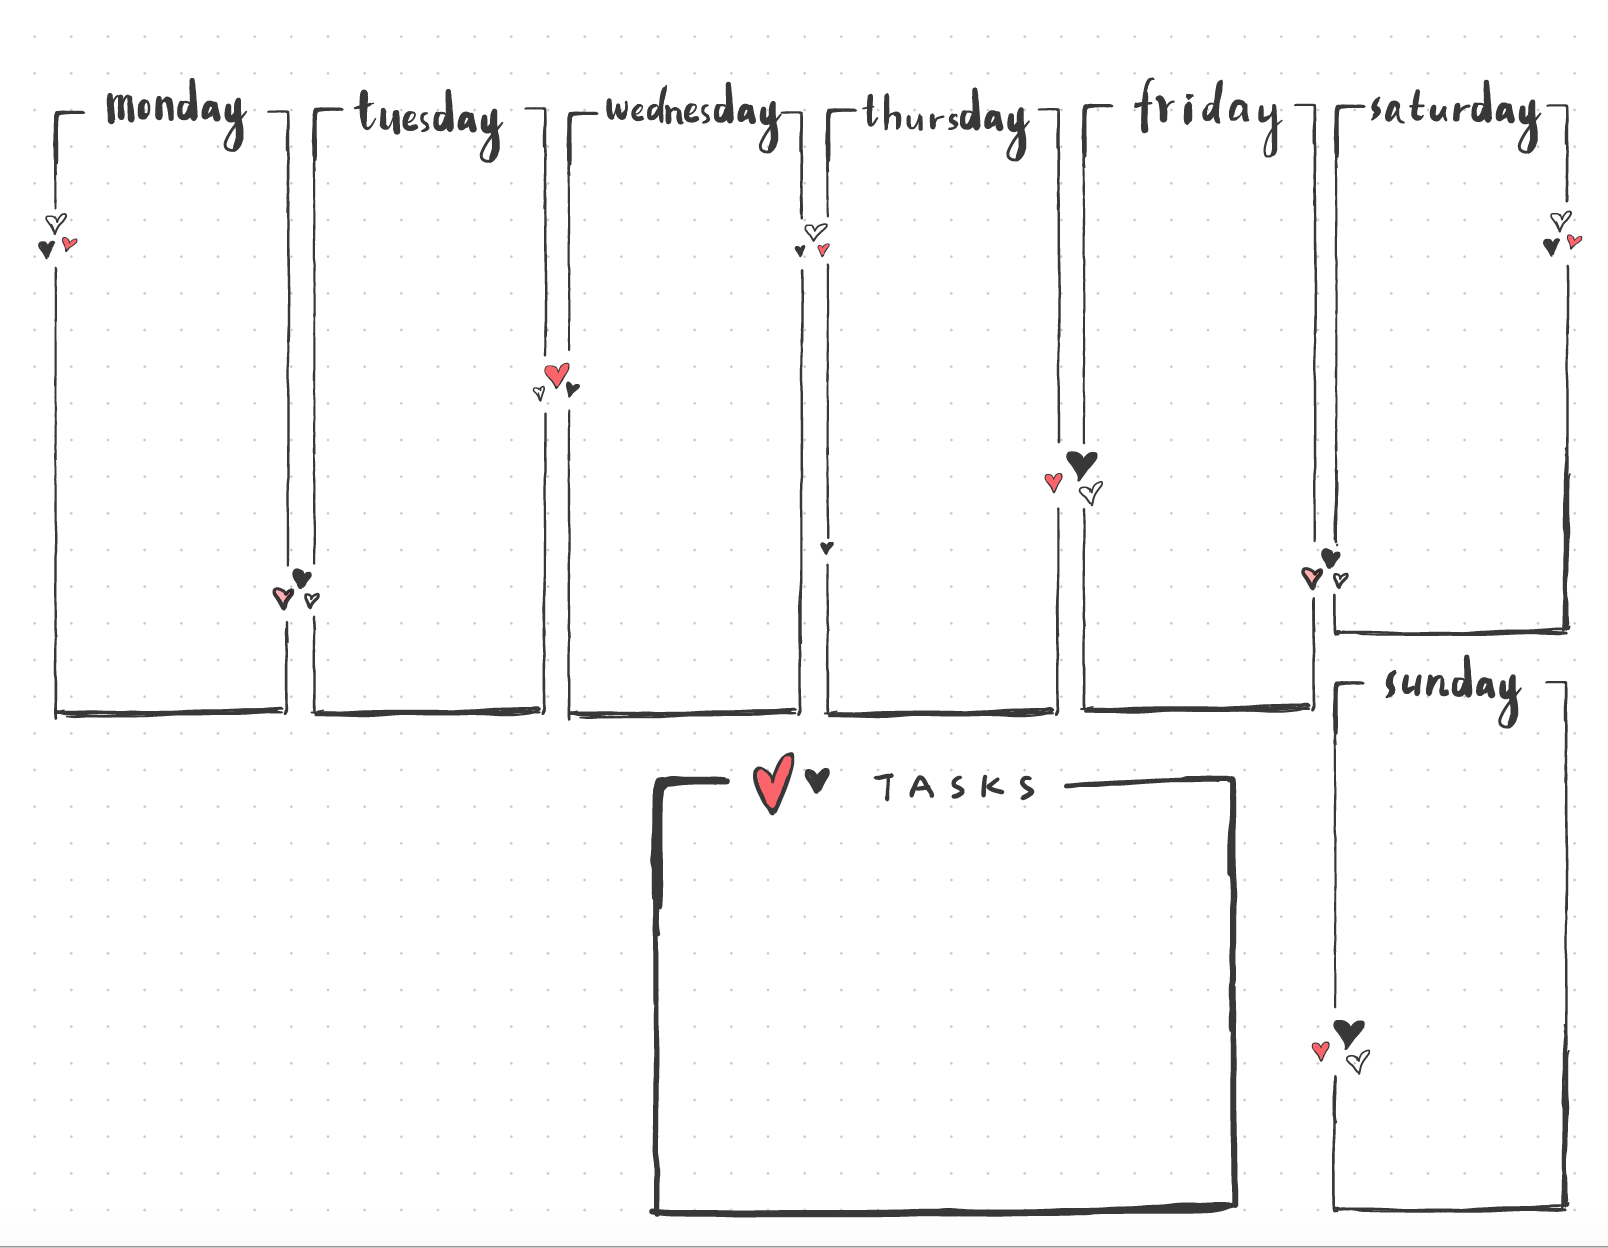 monday tuesday wednesday thursday friday saturday
sunday
TASKS